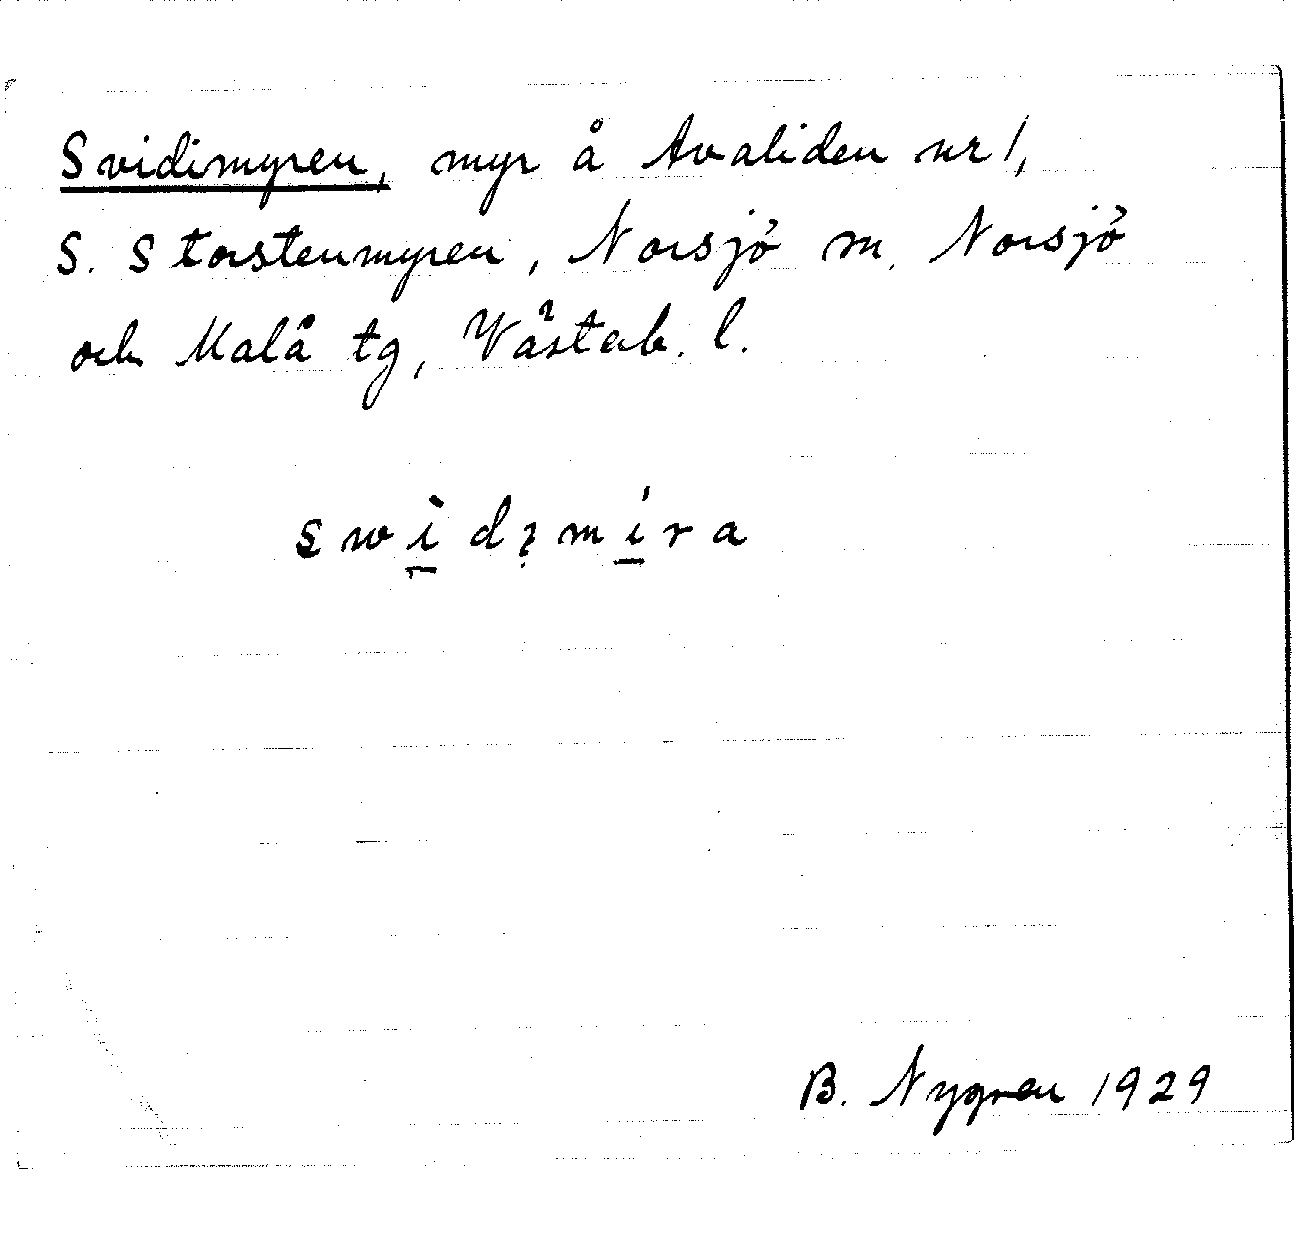 Svidimyren, myr å Avaliden nr 1,
S. Storstenmyren, Norsjö sn. Norsjö
och Malå tg, Västerb. l.
swìdɩmíra
B. Nygren 1929